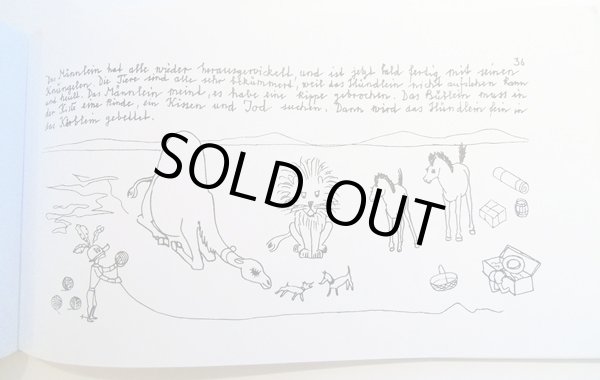 36
Das Männlein hat alle wieder herausgewickelt, und ist jetzt bald fertig mit seinen
Knäugelen. Die Tiere sind alle sehr bekümmert, weil das Hündlein nicht aufstehen kann
und heult. Das Männlein meint, es habe eine Rippe gebrochen. Das Büblein muss in
der Kiste eine Binde, ein Kissen und Jod suchen. Dann wird das Hündlein fein in
das Körblein gebettet.
SOLD OUT